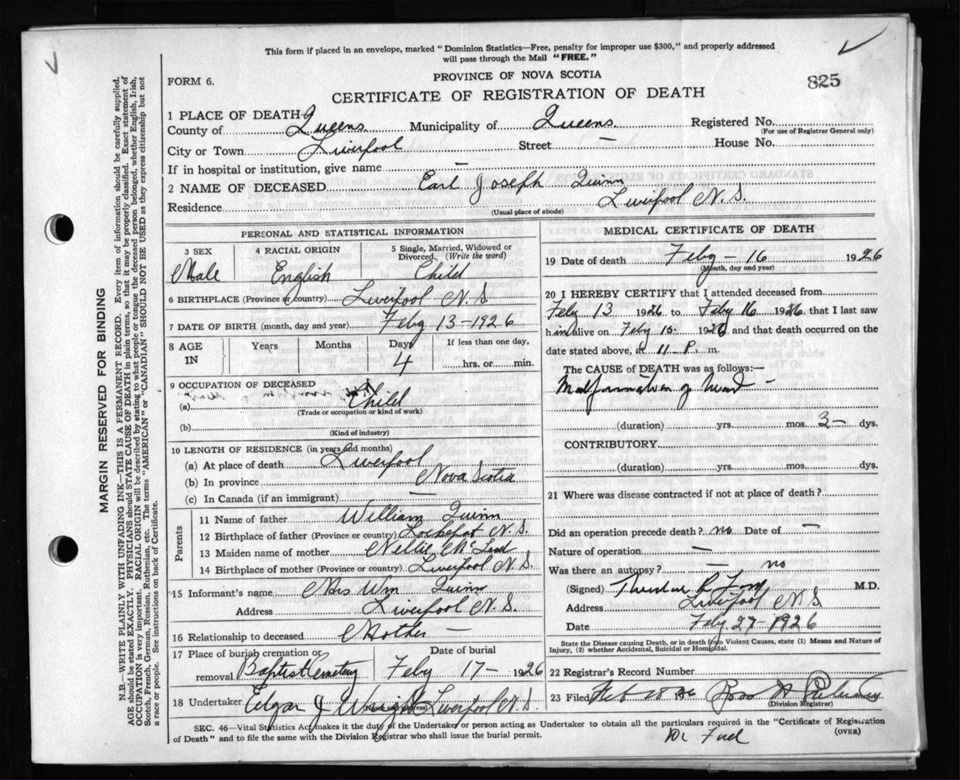 This form if placed in an envelope, marked "Dominion Statistics—Free, penalty for improper use $300," and properly addressed
will pass through the Mail "FREE."
FORM 6.
PROVINCE OF NOVA SCOTIA
825
CERTIFICATE OF REGISTRATION OF DEATH
1 PLACE OF DEATH
County of Queens Municipality of Queens Registered No.
(For use of Registrar General only)
City or Town Liverpool Street — House No.
If in hospital or institution, give name —
2 NAME OF DECEASED Earl Joseph Quinn
Residence Liverpool N.S.
(Usual place of abode)
PERSONAL AND STATISTICAL INFORMATION
3 SEX 4 RACIAL ORIGIN 5 Single, Married, Widowed or Divorced (Write the word)
Male English Child
6 BIRTHPLACE (Province or country) Liverpool N.S
7 DATE OF BIRTH (month, day and year) Feby 13 - 1926
8 AGE IN Years Months Days If less than one day,
4 hrs. or min.
9 OCCUPATION OF DECEASED
(a) Child
(Trade or occupation or kind of work)
(b)
(Kind of industry)
10 LENGTH OF RESIDENCE (in years and months)
(a) At place of death Liverpool
(b) In province Nova Scotia
(c) In Canada (if an immigrant) —
Parents
11 Name of father William Quinn
12 Birthplace of father (Province or country) N.S.
13 Maiden name of mother Nellie McLeod
14 Birthplace of mother (Province or country) Liverpool N.S.
15 Informant's name Mrs Wm Quinn
Address Liverpool N.S.
16 Relationship to deceased Mother
17 Place of burial cremation or removal Baptist Cemetery Date of burial Feby 17 - 1926
18 Undertaker Edgar J Wright Liverpool N.S.
MEDICAL CERTIFICATE OF DEATH
19 Date of death Feby - 16 1926
(Month, day and year)
20 I HEREBY CERTIFY that I attended deceased from
Feby 13 1926 to Feby 16 1926, that I last saw
him alive on Feby 15 1926, and that death occurred on
date stated above, at 11 P. m.
The CAUSE of DEATH was as follows:—
Malformation of heart -
(duration) yrs. mos. 3 - dys.
CONTRIBUTORY
(duration) yrs. mos. dys.
21 Where was disease contracted if not at place of death?
Did an operation precede death? no Date of —
Nature of operation —
Was there an autopsy? — no
(Signed) M.D.
Address Liverpool N.S
Date Feby 27 - 1926
State the Disease causing Death, or in death from Violent Causes, state (1) Means and Nature of
Injury, (2) whether Accidental, Suicidal or Homicidal.
22 Registrar's Record Number
23 Filed Feb
(Division Registrar)
SEC. 46—Vital Statistics Act makes it the duty of the Undertaker or person acting as Undertaker to obtain all the particulars required in the "Certificate of Registration
of Death" and to file the same with the Division Registrar who shall issue the burial permit.
(OVER)
MARGIN RESERVED FOR BINDING
N.B.—WRITE PLAINLY WITH UNFADING INK—THIS IS A PERMANENT RECORD. Every item of information should be carefully supplied.
AGE should be stated EXACTLY. PHYSICIANS should STATE CAUSE OF DEATH in plain terms, so that it may be properly classified. Exact statement of
OCCUPATION is very important. RACIAL ORIGIN will be described by stating to what people or tongue the deceased person belonged, whether English, Irish,
Scotch, French, German, Russian, Ruthenian, etc. The terms "AMERICAN" or "CANADIAN" SHOULD NOT BE USED as they express citizenship but not
a race or people. See instructions on back of Certificate.